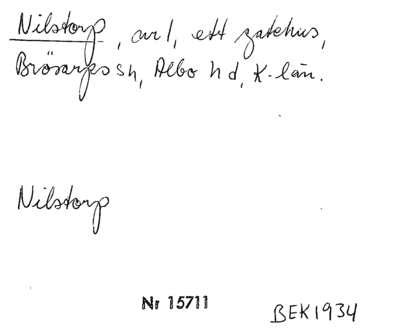 Nilstorp, avl, ett gatehus,
Brösarps sn, Albo hd, K-län.
Nilstorp
Nr 15711
BEK1934